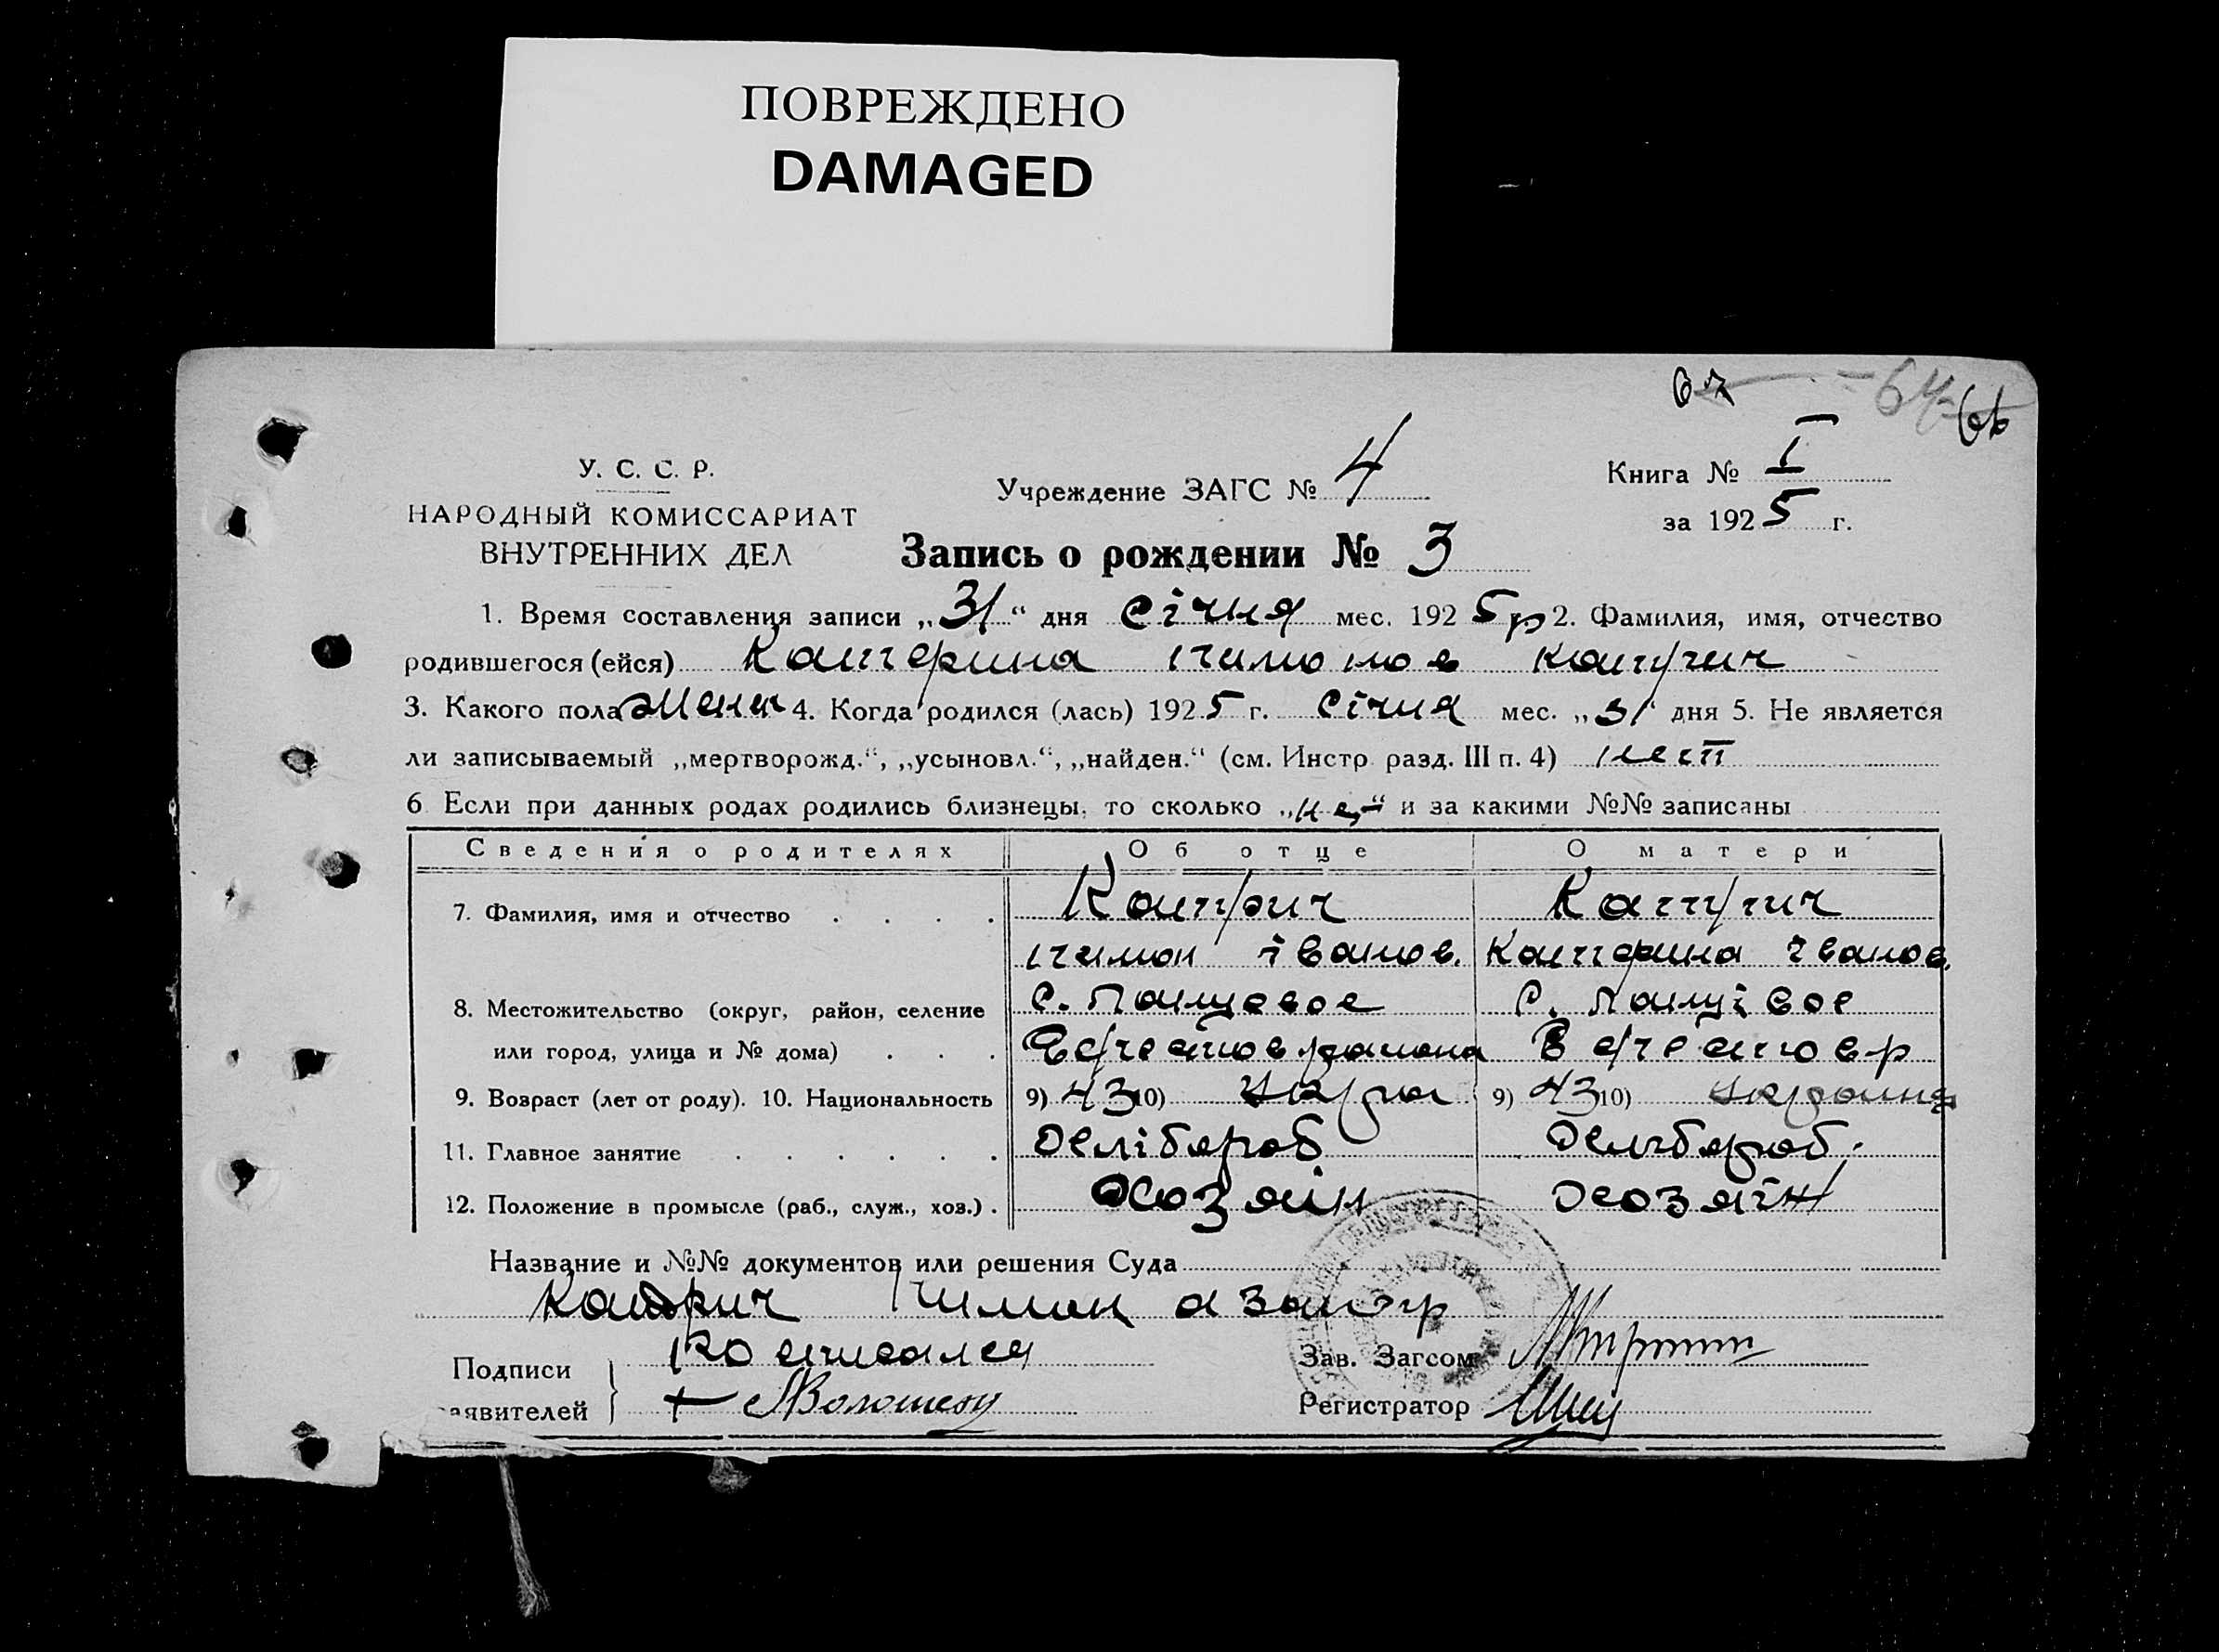 ПОВРЕЖДЕНО
DAMAGED
67 64 66
У. С. С. Р.
НАРОДНЫЙ КОМИССАРИАТ
ВНУТРЕННИХ ДЕЛ
Учреждение ЗАГС № 4
Книга № I
за 1925 г.
Запись о рождении № 3
1. Время составления записи „31“ дня Січня мес. 1925 р 2. Фамилия, имя, отчество
родившегося (ейся) Катерина тимонов катрич
3. Какого пола жен 4. Когда родился (лась) 1925 г. Січня мес. „31“ дня 5. Не является
ли записываемый „мертворожд.“, „усыновл.“, „найден.“ (см. Инстр разд. III п. 4) нет
6 Если при данных родах родились близнецы, то сколько „не“ и за какими №№ записаны
Сведения о родителях Об отце О матери
7. Фамилия, имя и отчество . . . . Катрич Катрич
тимон іванов. Катерина Іванов.
8. Местожительство (округ, район, селение С.
или город, улица и № дома) . . . района
9. Возраст (лет от роду). 10. Национальность 9) 43 10) Укра 9) 43 10) Украинц
11. Главное занятие . . . . . . хлібороб хлібороб.
12. Положение в промысле (раб., служ., хоз.) . хозяйн хозяйн
Название и №№ документов или решения Суда
Катрич тимон а
Подписи
заявителей } +
Зав. Загсом
Регистратор